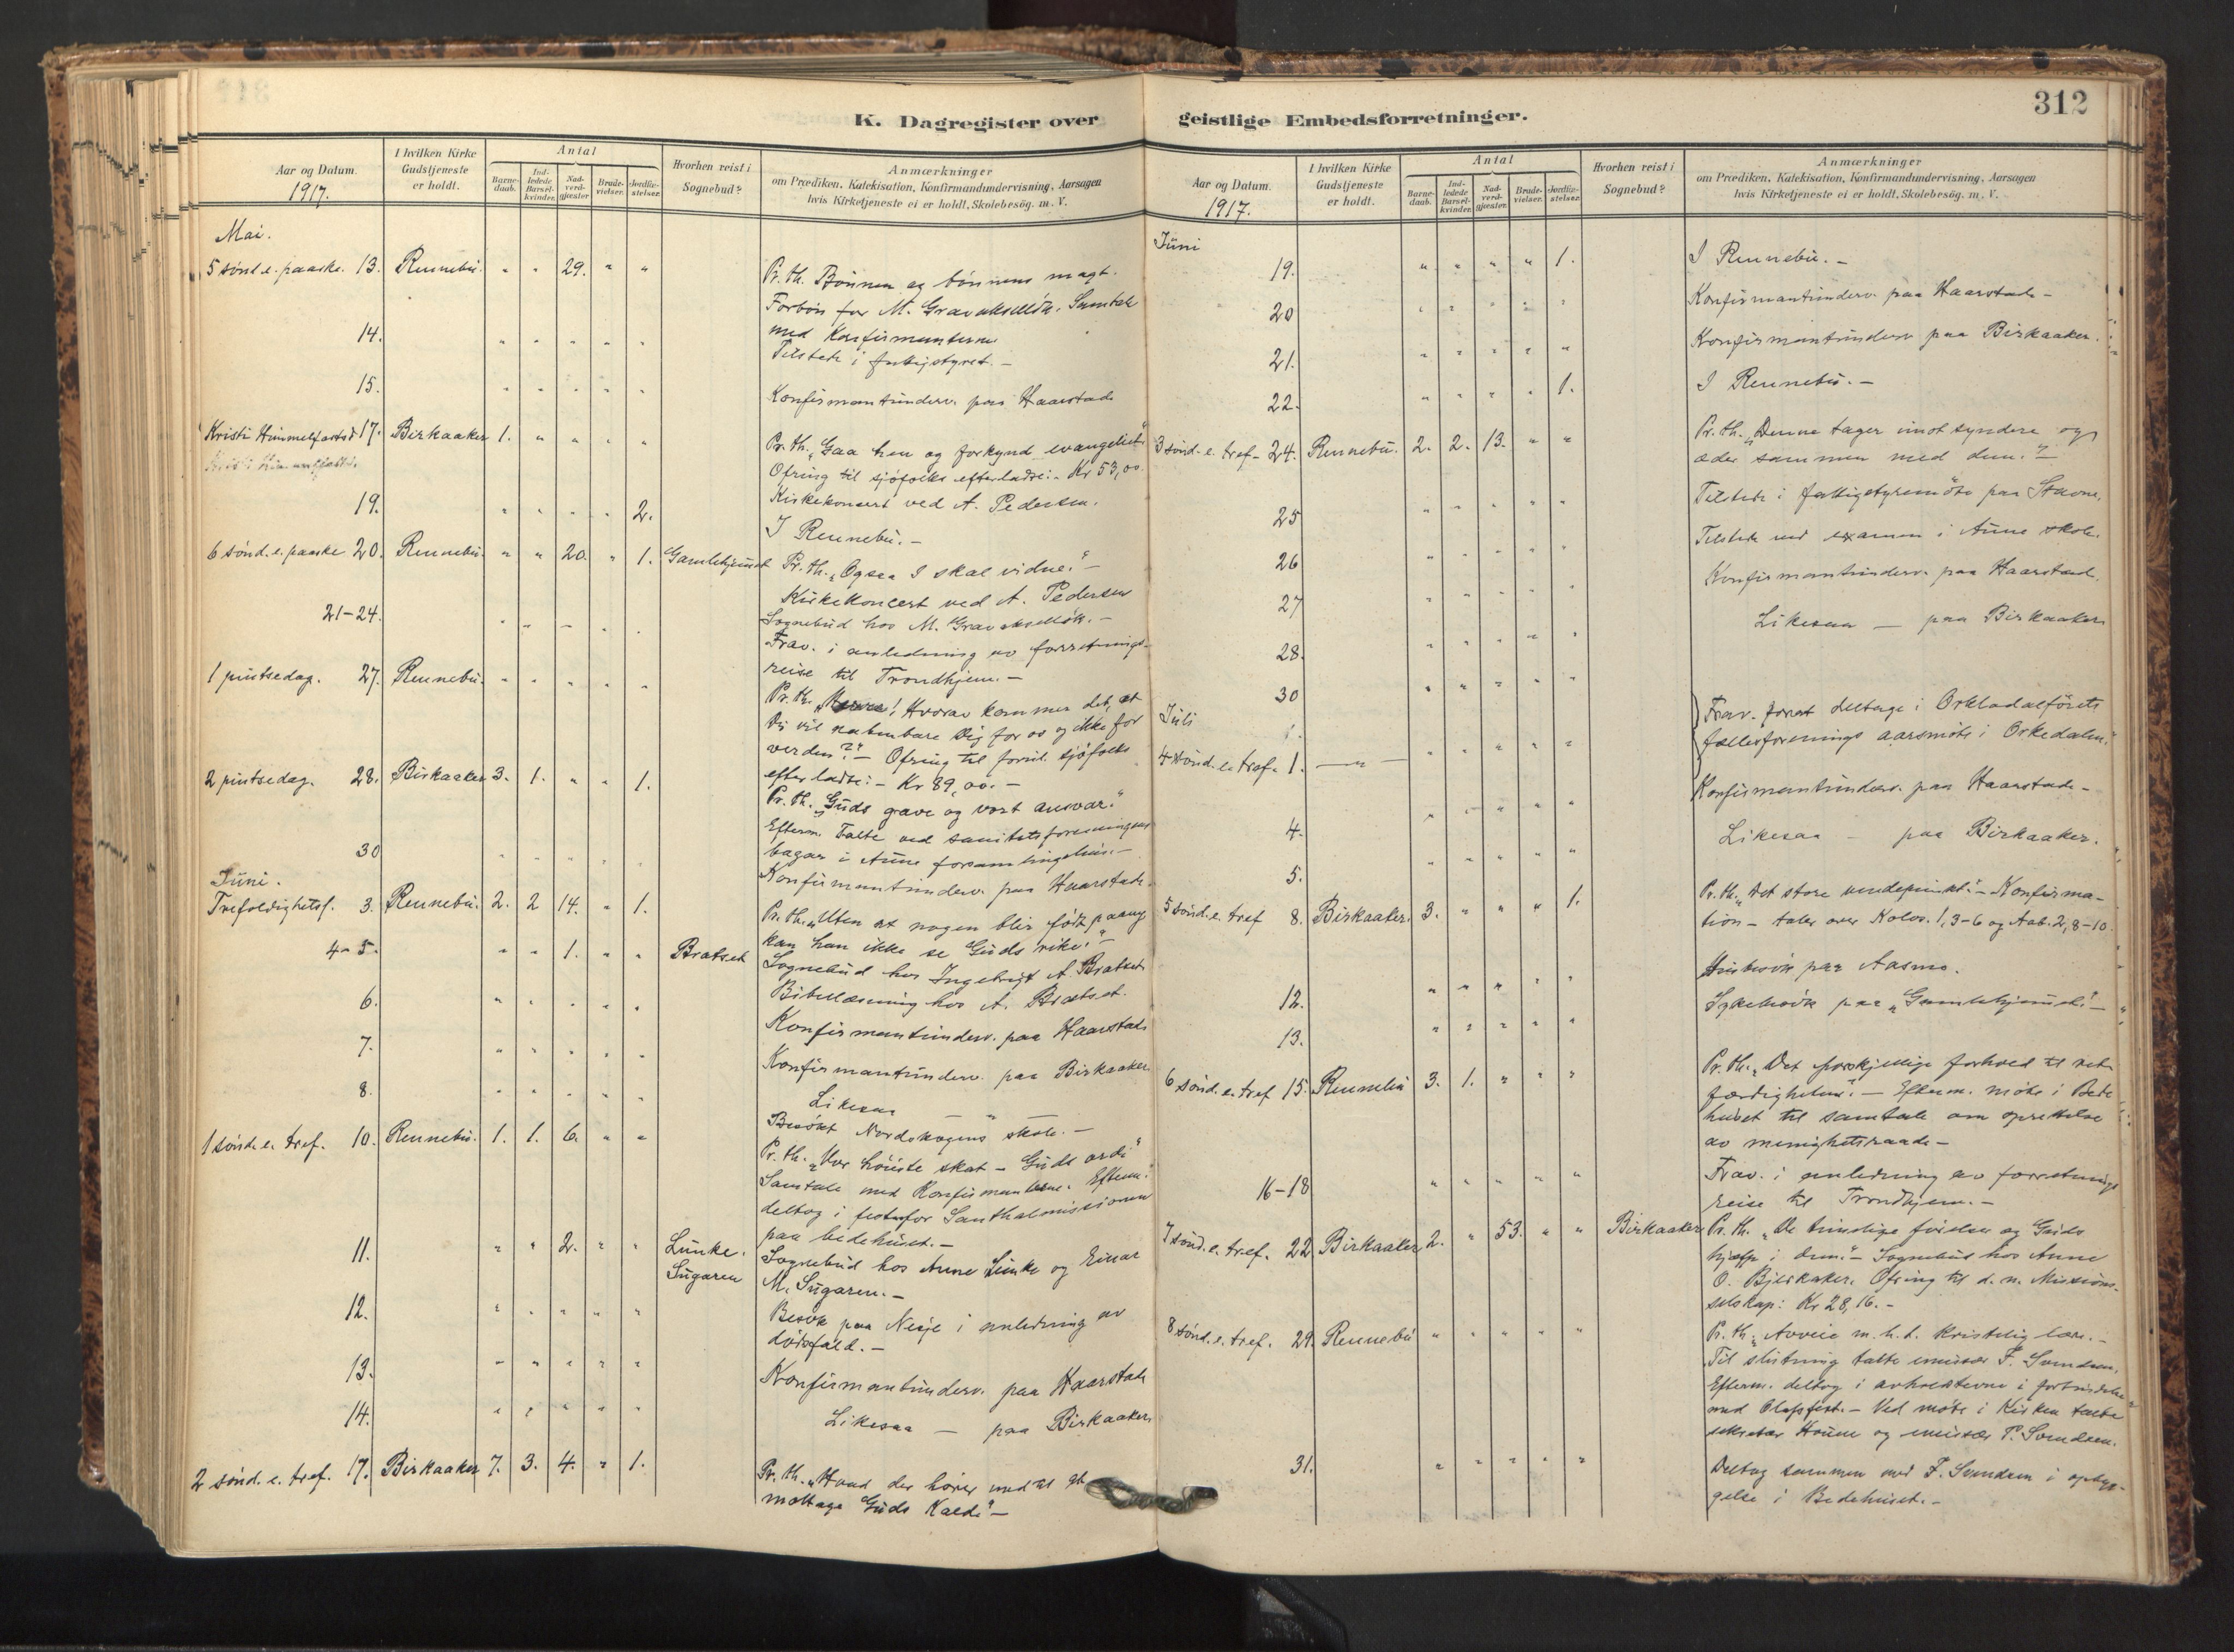 312
K. Dagregister over
Aar og Datum.
1917.
I hvilken Kirke
Gudstjeneste
er holdt.
Antal
Barne-
daab.
Ind-
ledede
Barsel-
kvinder.
Nad-
verd-
gjæster.
Brude-
vielser.
Jordfæ-
stelser.
Hvorhen reist i
Sognebud?
Anmærkninger
om Prædiken, Katekisation, Konfirmandundervisning, Aarsagen
hvis Kirketjeneste ei er holdt, Skolebesög. m. V.
Mai.
5 sönd. e. paaske. 13. Rennebü. " " 29. " "
Pr. th. Bönnen og bönnens magt.
Forbön for M. Samtale
med Konfirmanterne
14. " " " " "
Tilstede i fattigstyret. –
15. " " " " "
Konfirmantünderv. paa Haarstad
Kristi Himmelfartsd. 17. Birkaaker 1. " " " "
Pr. th. „Gaa hen og forkynd evangeliet"
Ofring til sjöfolks efterladte: – Kr 53,00.
Kirkekoncert ved A. Pedersen.
19. " " " " 2.
I Rennebü. –
6 sönd. e. paaske 20. Rennebü. " " 20. " 1. Gamlehjemmet
Pr. th. „Ogsaa I skal vidne." –
Kirkekoncert ved A. Pedersen
Sognebüd hos M.
21–24. " " " " "
Frav. i anledning av forretnings-
reise til Trondhjem. –
1 pintsedag. 27. Rennebü. " " " " "
Pr. th. „Herre! Hvorav kommer det, at
Dü vil aabenbare Dig for os og ikke for
verden?" – Ofring til sjöfolks
efterladte: – Kr 89,00. –
2 pintsedag. 28. Birkaaker 3. 1. " " 1.
Pr. th. „Güds gave og vort ansvar."
Efterm. Talte ved sanitetsforeningens
bazar i Aüne forsamlingshüs. –
30 " " " " "
Konfirmantünderv. paa Haarstad.
Jüni.
Trefoldighetsf. 3. Rennebü. 2. 2 14. " 1.
Pr. th. „Uten at nogen blir födt paany
kan han ikke se Güds rike." –
4–5. " " 1. " " Bratset
Sognebüd hos Ingebrigt A. Bratset
Bibellæsning hos A. Bratset.
6. " " " " "
Konfirmantünderv. paa Haarstad
7. " " " " "
Konfirmantünderv. paa Birkaaker
8. " " " " "
Likesaa — " —
Besökt Nordskogens skole. –
1 sönd. e. tref. 10. Rennebü. 1. 1. 6. " "
Pr. th. „Vor höieste skat – Güds ord"
Samtale med Konfirmanterne. Efterm.
deltog i fest for Santhalmissionen
paa bedehüset. –
11. " " 2. " " Lünke.
Sügaren
Sognebüd hos Anne Lünke og Einar
M. Sügaren. –
12. " " " " "
Besök paa Nesje i anledning av
dödsfald. –
13. " " " " "
Konfirmantünderv. paa Haarstad
14. " " " " "
Likesaa — paa Birkaaker
2 sönd. e. tref. 17. Birkaaker 7. 3. 4. " 1.
Pr. th. „Hvad der hörer med til at
mottage Güds Kald." –
geistlige Embedsforretninger.
Aar og Datum.
1917.
I hvilken Kirke
Gudstjeneste
er holdt.
Antal
Barne-
daab.
Ind-
ledede
Barsel-
kvinder.
Nad-
verd-
gjæster.
Brude-
vielser.
Jordfæ-
stelser.
Hvorhen reist i
Sognebud?
Anmærkninger
om Prædiken, Katekisation, Konfirmandundervisning, Aarsagen
hvis Kirketjeneste ei er holdt, Skolebesög. m. V.
Jüni
19. " " " " 1.
I Rennebü. –
20 " " " " "
Konfirmantünderv. paa Haarstad –
21. " " " " "
Konfirmantünderv. paa Birkaaker.
22. " " " " 1.
I Rennebü. –
3 sönd. e. tref. 24. Rennebü. 2. 2. 13. " "
Pr. th. „Denne tager imot syndere og
æder sammen med dem." –
25 " " " " "
Tilstede i fattigstyremöte paa Stavne.
26 " " " " "
Tilstede ved examen i Aüne skole.
27 " " " " "
Konfirmantünderv. paa Haarstad.
28. " " " " "
Likesaa — paa Birkaaker
30 " " " " "
Jüli
1.
4 sönd. e. tref. 1. — " —
Frav. for at deltage i Orkladalförets
fællesforenings aarsmöte i Orkedalen.
4. " " " " "
Konfirmantünderv. paa Haarstad –
5. " " " " "
Likesaa — paa Birkaaker.
5 sönd. e. tref 8. Birkaaker. 3. " " " 1.
Pr. th. „Det store vendepünkt." – Konfirma-
tion – taler over Kolos. 1, 3–6 og Aab. 2, 8–10.
12. " " " " "
Hüsbesök paa Aasmo.
13. " " " " "
Sykebesök paa „Gamlehjemmet." –
6 sönd. e. tref 15. Rennebü 3. 1. " " "
Pr. th. „Det forskjellige forhold til ret-
færdigheten". – Efterm. möte i Bede
hüset til samtale om oprettelse
av menighetsraad. –
16–18 " " " " "
Frav. i anledning av forretnings
reise til Trondhjem. –
7 sönd. e. tref. 22 Birkaaker 2. " 53. " " Birkaaker
Pr. th. „De timelige fordeler og Güds
hjælp i dem." – Sognebüd hos Anne
O. Bjerkaker. Ofring til d. n. Missions-
selskap: Kr 28,16. –
8 sönd. e. tref. 29. Rennebü " " " " "
Pr. th. „Avveie m. h. t. kristelig lære. –
Til slütning talte emissær F. Svendsen.
Efterm. deltog i avholdsstevne i forbindelse
med Olafsfest. – Ved möte i Kirken talte
sekretær og emissær F. Svendsen.
31. " " " " "
Deltog sammen med F. Svendsen i opbyg-
gelse i Bedehüset. –